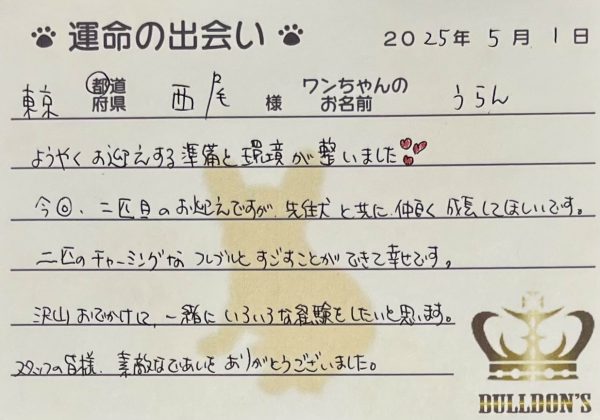 運命の出会い 2025年 5月 1日
東京 都道府県 西尾 様 ワンちゃんのお名前 うらん
ようやくお迎えする準備と環境が整いました
今回、二匹目のお迎えですが、先住犬と共に仲良く成長してほしいです。
二匹のチャーミングなフレブルとすごすことができて幸せです。
沢山おでかけして、一緒にいろいろな経験をしたいと思います。
スタッフの皆様、素敵なであいをありがとうございました。
BULLDON'S